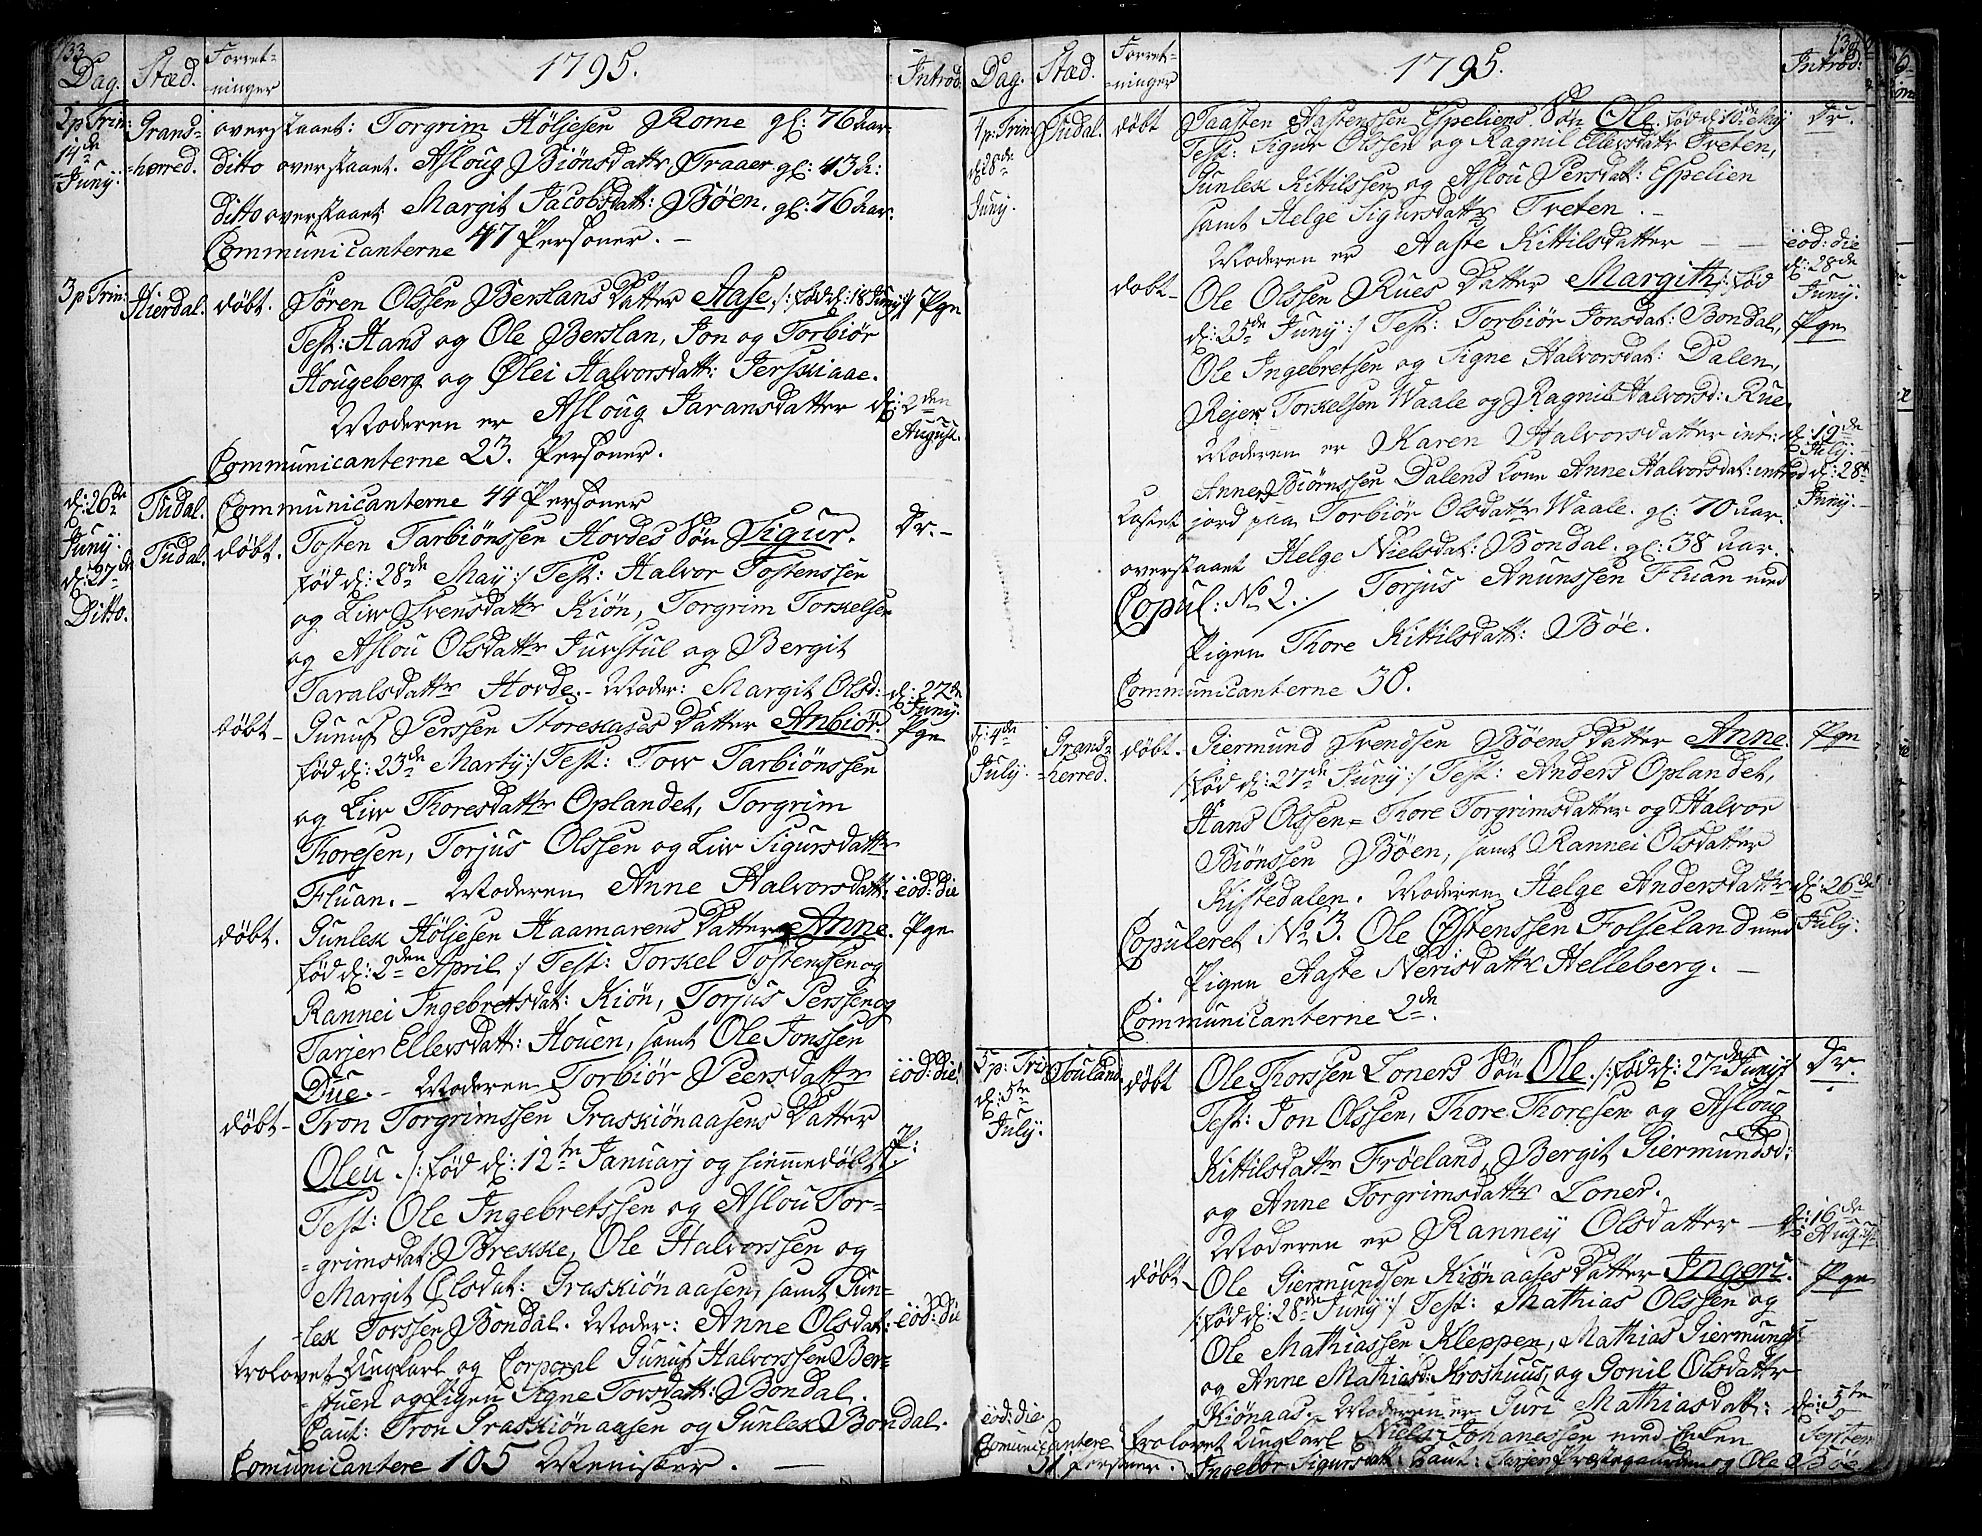 133
Dag. Stæd. Forret-ninger 1795. Introd.
2 p Trin: Grans- overstaaet: Torgrim Höljesen Rome gl: 76 aar
14de =herred. ditto overstaaet. Asloug Biönsdattr Traaer gl: 43 A:
Juny: ditto overstaaet Margit Jacobsdatt: Böen. gl: 76 Aar.
Communicanterne 47 Personer. –
3 p Trin: Hierdal. döbt. Sören Olssen Berslans Datter Aase /: föd d: 18 Juny :/ Pge
Test: Hans og Ole Berslan, Jon og Torbiör
Hougeberg og Ølei Halvorsdatt: Jerskiaae.
Moderen er Asloug Jaransdatter d: 2den
August.
Communicanterne 23. Personer.
d: 26de Tudal. Communicanterne 44 Personer
Juny:
d: 27de Tudal. döbt. Tosten Tarbiönssen Hovdes Sön Sigur. Dr. –
föd d: 28de May :/ Test: Halvor Tostenssen
Ditto. og Liv Svensdattr Kiön, Torgrim Torkelsen
og Aslou Olsdattr Juvstul og Bergit
Taralsdattr Hovde. – Moder: Margit Olsd: d: 27de
Juny.
döbt – Gunuf Perssen Storekaases Datter Anbiör. Pge
föd d: 23de Marty :/ Test: Tov Tarbiönssen
og Liv Thoresdattr Oplandet, Torgrim
Thoresen, Torjus Olssen og Liv Sigursdattr
Fluan. – Moderen Anne Halvorsdatt: eod: die
döbt. Gunlek Höljesen Haamarens Datter Anne. Pge
föd d: 2den April :/ Test: Torkel Tostenssen og
Rannei Ingebretsdat: Kiön, Torjus Perssen og
Tarjer Ellevsdatt: Houen, samt Ole Jonssen
Due. – Moderen Torbiör Peersdattr eod: die
döbt – Tron Torgrimssen Graskiönaasens Datter
Oleu /: föd d: 12te Januarj og hiemmedöbt :/ P:
Test: Ole Ingebretssen og Aslou Tor=
=grimsdat: Brekke, Ole Halvorssen og
Margit Olsdat: Graskiönaasen, samt Gun=
=lek Torssen Bondal. Moder: Anne Olsdat: eod: die
trolovet Ungkarl og Corporal Gunuf Halvorssen Ber=
=stuen og Pigen Signe Torsdatt: Bondal.
Caut: Tron Graskiönaasen og Gunlek Bondal.
Comunicantere 105 Menisker. –
134
Dag. Stæd. Forret-ninger 1795. Introd:
4 p: Trin: Tudal. döbt Taasten Aastenssen Espeliens Sön Ole. Dr.
d: 28de Test: Sigur Olssen og Ragnil Ellevsdattr Treten,
Juny. Gunlek Kittilssen og Aslou Persdat: Espelien
samt Helge Sigursdattr Treten. –
Moderen er Aaste Kittilsdatter – – eod: die
d: 28de
Juny.
döbt – Ole Olssen Rues Datter Margith /: föd
d: 25de Juny :/ Test: Torbiör Jonsdat: Bondal, Pge
Ole Ingebretsen og Signe Halvorsdat: Dalen,
Rejer Torkelsen Waale og Ragnil Halvorsd: Rue.
Moderen er Karen Halvorsdatter int: d: 19de
July:
Anners Biörnssen Dalens Kone Anne Halvorsdat: introd d: 28de
Juny. –
Kastet jord paa Torbiör Olsdattr Waale. gl: 70 aar.
overstaaet Helge Nielsdat: Bondal. gl: 38 aar.
Copul: No 2. / Torjus Anunssen Fluan med
Pigen Thore Kittilsdatt: Böe.
Communicanterne 30.
d: 4de Grans= döbt. Giermund Svendsen Böens Datter Anne. Pge
July. =herred. /: föd d: 27de Juny :/ Test: Anders Oplandet,
Hans Olssen = Thore Torgrimsdatter og Halvor
Biönssen Böen, samt Rannei Olsdatter
Kistedalen. Moderen Helge Andersdattr d: 26de
Copuleret No 3. Ole Østenssen Folseland med July:
Pigen Aaste Nerisdattr Helleberg. –
Communicanterne 2de.
5 p: Trin: Souland döbt Ole Thorssen Loners Sön Ole. /: föd d: 27de Juny :/ Dr.
d: 5te Test: Jon Olssen, Thore Thoresen og Asloug
July. Kittilsdattr Fröeland, Bergit Giermundsd:
og Anne Torgrimsdattr Loner.
Moderen er Ranney Olsdatter – d: 16de
Aug:
döbt – Ole Giermundsen Kiönaases Datter Ingeri. Pge
/: föd d: 28de Juny :/ Test: Mathias Olssen og
Ole Mathiassen Kleppen, Mathias Giermunds:
og Anne Mathiasd: Kroshuus, og Gonil Olsdattr
Kiönaas. Moderen er Guri Mathiasdatt: d: 5te
Septem
eod: die trolovet Ungkarl Niels Johanessen med Enken
Comunicantere 51 Personer. Ingebör Sigursdatt: Caut: Tarjer Præstegaarden og Ole Böe